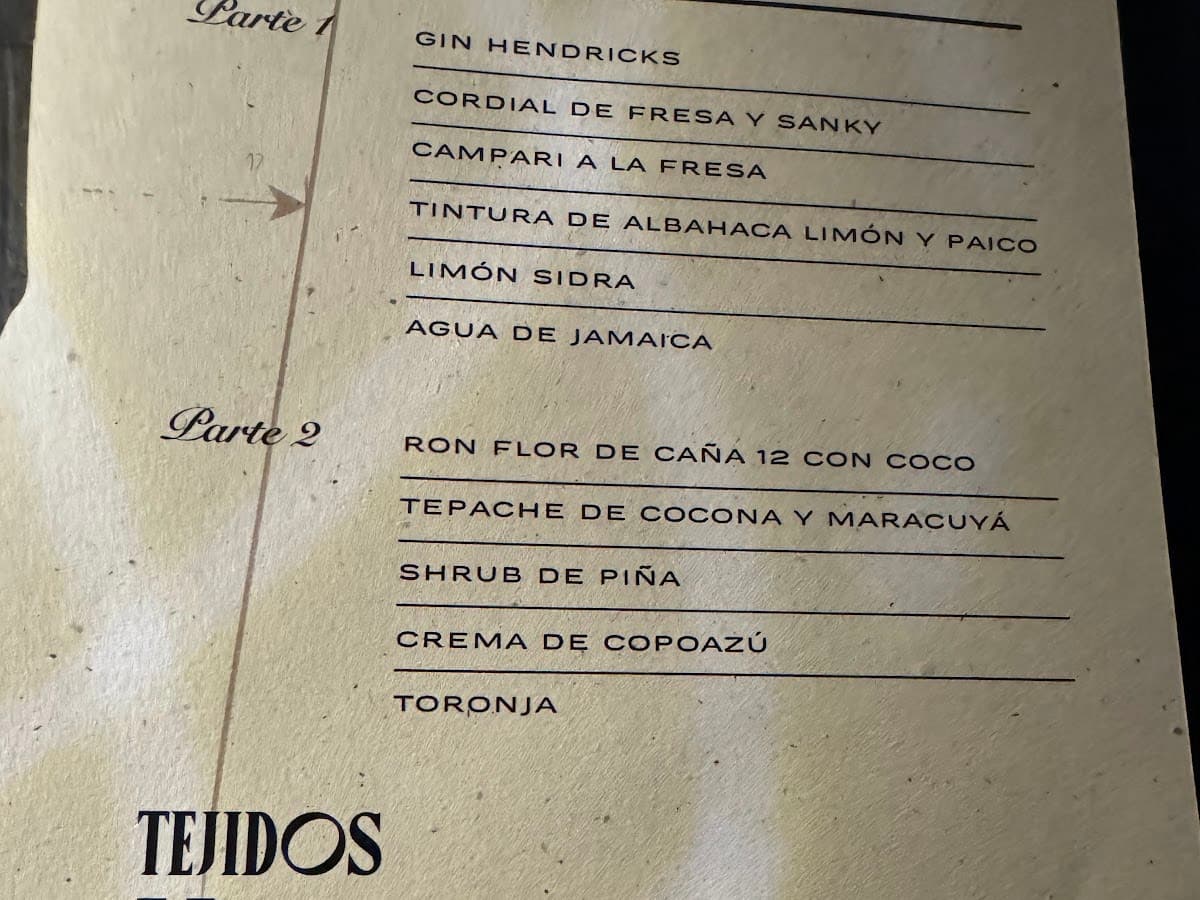 Parte 1
GIN HENDRICKS
CORDIAL DE FRESA Y SANKY
CAMPARI A LA FRESA
TINTURA DE ALBAHACA LIMÓN Y PAICO
LIMÓN SIDRA
AGUA DE JAMAICA
Parte 2
RON FLOR DE CAÑA 12 CON COCO
TEPACHE DE COCONA Y MARACUYÁ
SHRUB DE PIÑA
CREMA DE COPOAZÚ
TORONJA
TEJIDOS